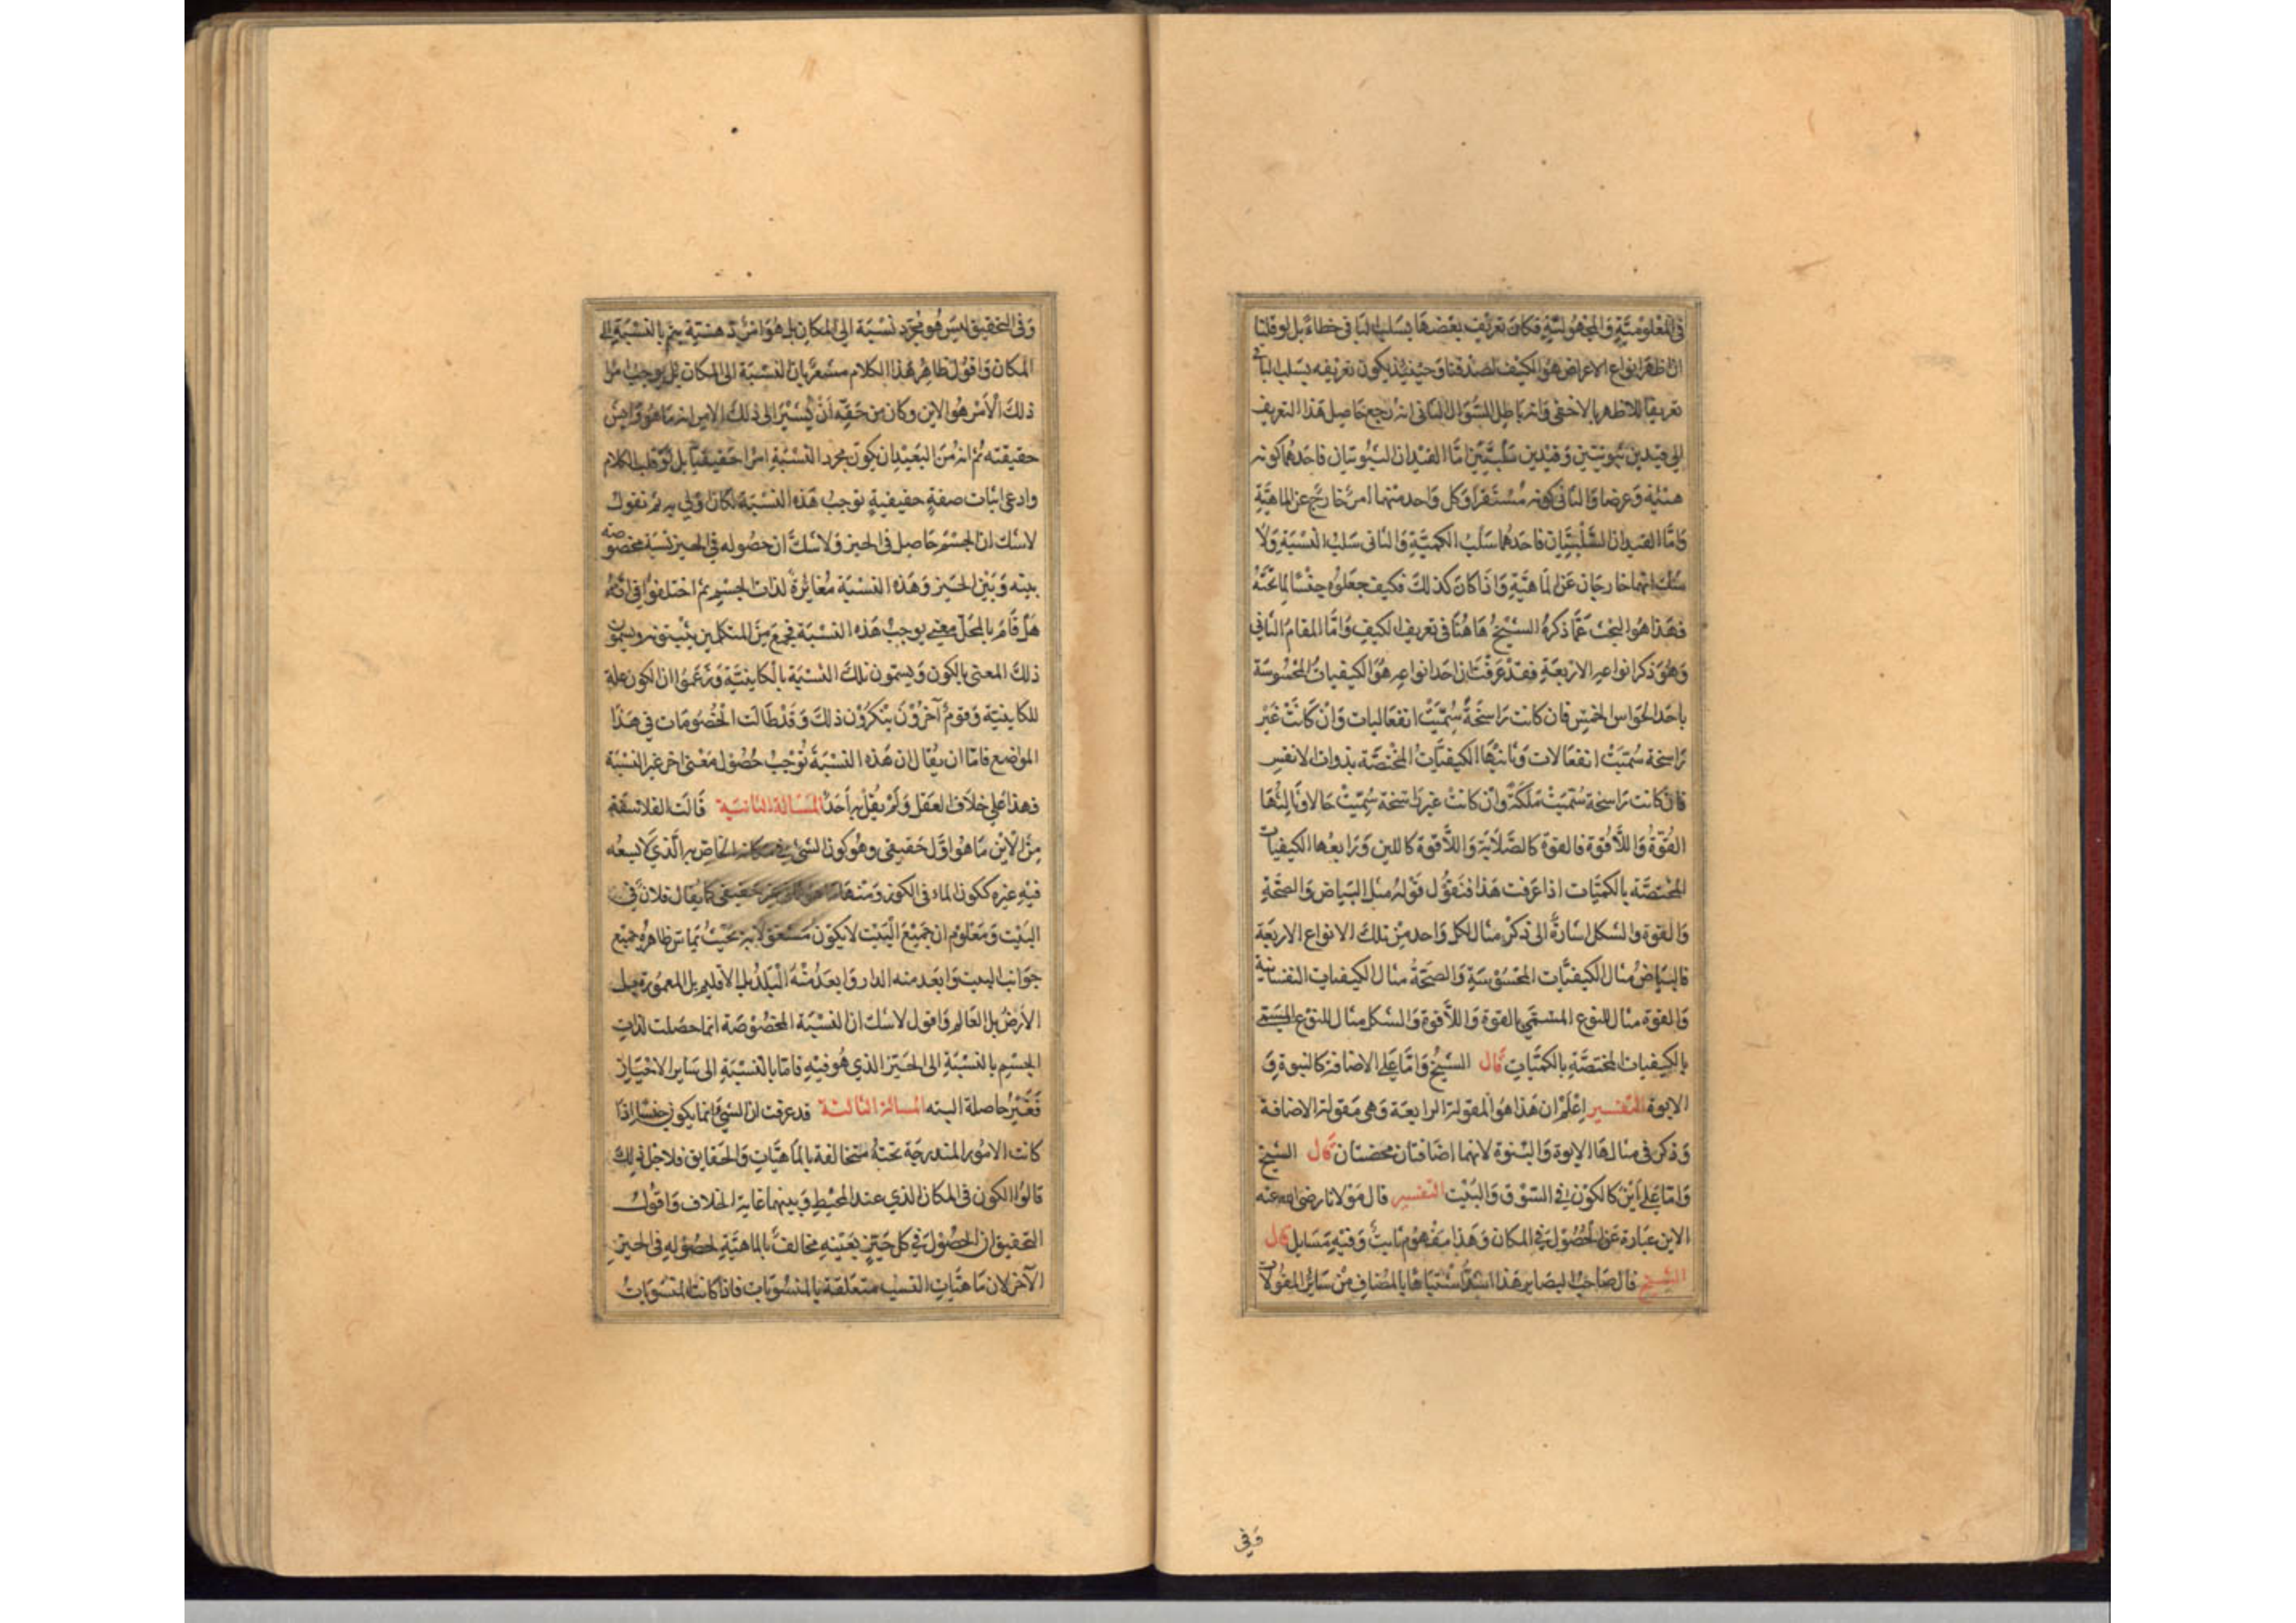 في المعلومية والمجهولية فكان تعريف بعضها بسلب الباقي خطاء بل لو قلنا
ان اظهر انواع الاعراض هو الكيف لصدقنا وحينئذ يكون تعريفه بسلب الباقي
تعريفا للاظهر بالاخفى وانه باطل السؤال الثاني انه رجع حاصل هذا التعريف
الى قيدين ثبوتيين وقيدين سلبيين اما القيدان الثبوتيان فاحدهما كونه
هيئة وعرضا والثاني كونه مستقرا وكل واحد منهما امر خارج عن الماهية
واما القيدان السلبيان فاحدهما سلب الكمية والثاني سلب النسبة ولا
شك انهما خارجان عن الماهية واذا كان كذلك فكيف جعلوه جنسا لما تحته
فهذا هو البحث عما ذكره الشيخ هاهنا في تعريف الكيف واما المقام الثاني
وهو ذكر انواعه الاربعة فقد عرفت ان احد انواعه هو الكيفيات المحسوسة
باحد الحواس الخمس فان كانت راسخة سميت انفعاليات وان كانت غير
راسخة سميت انفعالات وثانيها الكيفيات المختصة بذوات الانفس
فان كانت راسخة سميت ملكة وان كانت غير راسخة سميت حالا وثالثها
القوة واللاقوة فالقوة كالصلابة واللاقوة كاللين ورابعها الكيفيات
المختصة بالكميات اذا عرفت هذا فنقول قوله مثل البياض والصحة
والقوة والشكل اشارة الى ذكر مثال لكل واحد من تلك الانواع الاربعة
فالبياض مثال الكيفيات المحسوسة والصحة مثال الكيفيات النفسانية
والقوة مثال للنوع المسمى بالقوة واللاقوة والشكل مثال للنوع المسمى
بالكيفيات المختصة بالكميات قال الشيخ واما على الاضافة كالبنوة و
الابوة التفسير اعلم ان هذا هو المقولة الرابعة وهى مقولة الاضافة
وذكر في مثالها الابوة والبنوة لانهما اضافتان محضتان قال الشيخ
واما على اين كالكون في السوق والبيت التفسير قال مولانا رضى الله عنه
الاين عبارة عن الحصول في المكان وهذا مفهوم ثابت وفيه مسايل قال
الشيخ قال صاحب البصاير هذا اشد اشتباها بالمضاف من ساير المقولات
وفي
وفي التحقيق ليس هو مجرد نسبة الى المكان بل هو امر ذ هيئة يتم بالنسبة الى
المكان واقول ظاهر هذا الكلام مشعر بان النسبة الى المكان بل يوجب امرا
ذلك الامر هو الاين وكان من حقه ان يشير الى ذلك الامر انه ما هو وايش
حقيقته ثم انه من البعيد ان يكون مجرد النسبة امرا حقيقيا بل لو قلب الكلام
وادعى اثبات صفة حقيقية توجب هذه النسبة لكان اولى به ثم نقول
لا شك ان الجسم حاصل في الحيز ولا شك ان حصوله في الحيز نسبة مخصوصة
بينه وبين الحيز وهذه النسبة مغايرة لذات الجسم ثم اختلفوا في انه
هل قام بالمحل معنى يوجب هذه النسبة فجمع من المتكلمين يثبتونه ويسمون
ذلك المعنى بالكون ويسمون تلك النسبة بالكاينية وزعموا ان الكون علة
للكاينية وقوم آخرون ينكرون ذلك وقد طالت الخصومات في هذا
المواضع فاما ان يقال ان هذه النسبة توجب حصول معنى اخر غير النسبة
فهذا على خلاف العقل ولم يقل به احد المسالة الثانية قالت الفلاسفة
من الاين ما هو اول حقيقى وهو كون الشئ في مكانه الخاص به الذي لا يسعه
فيه غيره ككون الماء في الكوز ومنها ما هو ثان غير حقيقى كما يقال فلان في
البيت ومعلوم ان جميع البيت لا يكون مشغولا به بحيث يماس ظاهره جميع
جوانب البيت وابعد منه الدار وابعد منه البلد بل الاقليم بل المعمورة بل
الارض بل العالم واقول لا شك ان النسبة المخصوصة انما حصلت لذات
الجسم بالنسبة الى الحيز الذي هو فيه فاما بالنسبة الى ساير الاحياز
فغير حاصلة البته المسالة الثالثة قد عرفت ان الشئ انما يكون جنسا اذا
كانت الامور المندرجة تحته متخالفة بالماهيات والحقايق فلاجل ذلك
قالوا الكون في المكان الذي عند المحيط وبينهما غاية الخلاف واقول
التحقيق ان الحصول في كل حيز بعينه مخالف بالماهية لحصوله في الحيز
الآخر لان ماهيات النسب متعلقة بالمنسوبات فاذا كانت المنسوبات